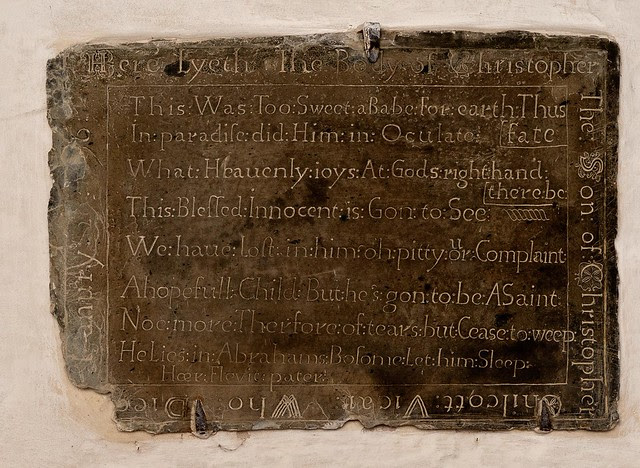 Here Lyeth The Body of Christopher
The Son of Christopher
Chilcott Vicar Who Died
Ianury
This: Was: Too: Sweet: a Babe: for: earth: Thus
In: paradise: did: Him: in: Oculate: fate
What: Heauenly: ioys: At: Gods: right: hand:
there: be
This: Blessed: Innocent: is: Gon: to: See:
We: haue: Lost: in: him: oh: pitty: our: Complaint
A hopefull: Child: But: he's: gon: to: be: A Saint
Noe: more: Therfore: of: tears: but: Cease: to: weep:
He Lies: in: Abrahams: Bosome: Let: him: Sleep:
Hær: Flevit: pater: